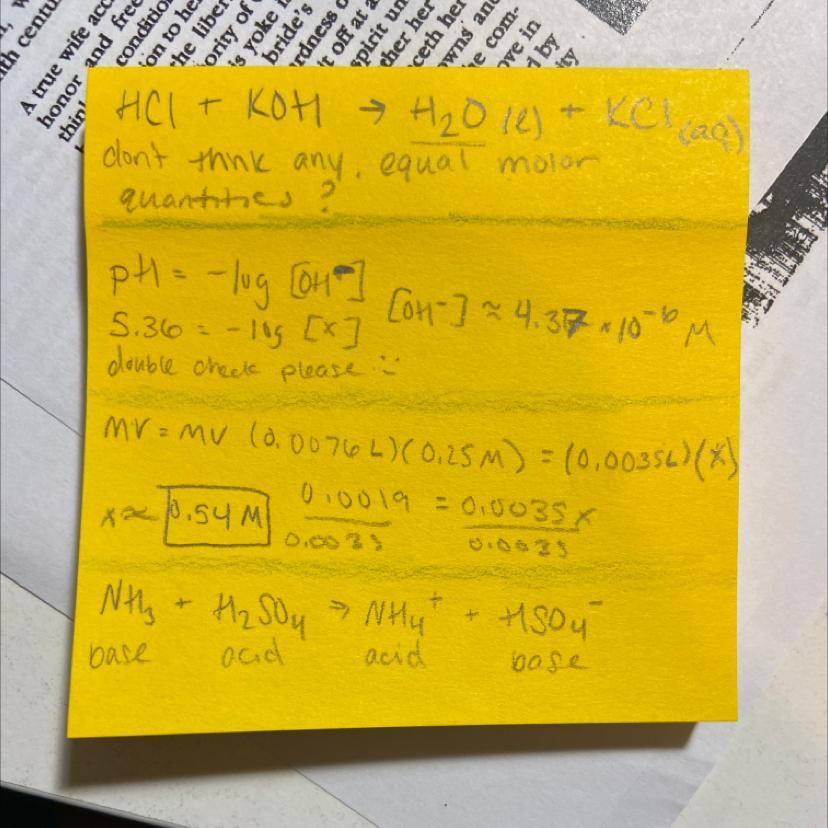 th centu
A true wife acc
honor and free
thin
condition
ion to hea
the liber
ority of
s yoke i
bride's
rdness o
t off at a
spirit un
ther her
aceth her
owns' and
e com-
ove in
d by
ity
HCl + KOH → H₂O (l) + KCl (aq)
don't think any, equal molar
quantities?
pH = -log [OH⁻]
5.36 = -log [x]
[OH⁻] ≈ 4.37 × 10⁻⁶ M
double check please :-
MV = MV (0.0076 L)(0.25M) = (0.0035L)(x)
0.0019 = 0.0035x
x ≈ 0.54 M
0.0035 0.0035
NH₃ + H₂SO₄ → NH₄⁺ + HSO₄⁻
base acid acid base